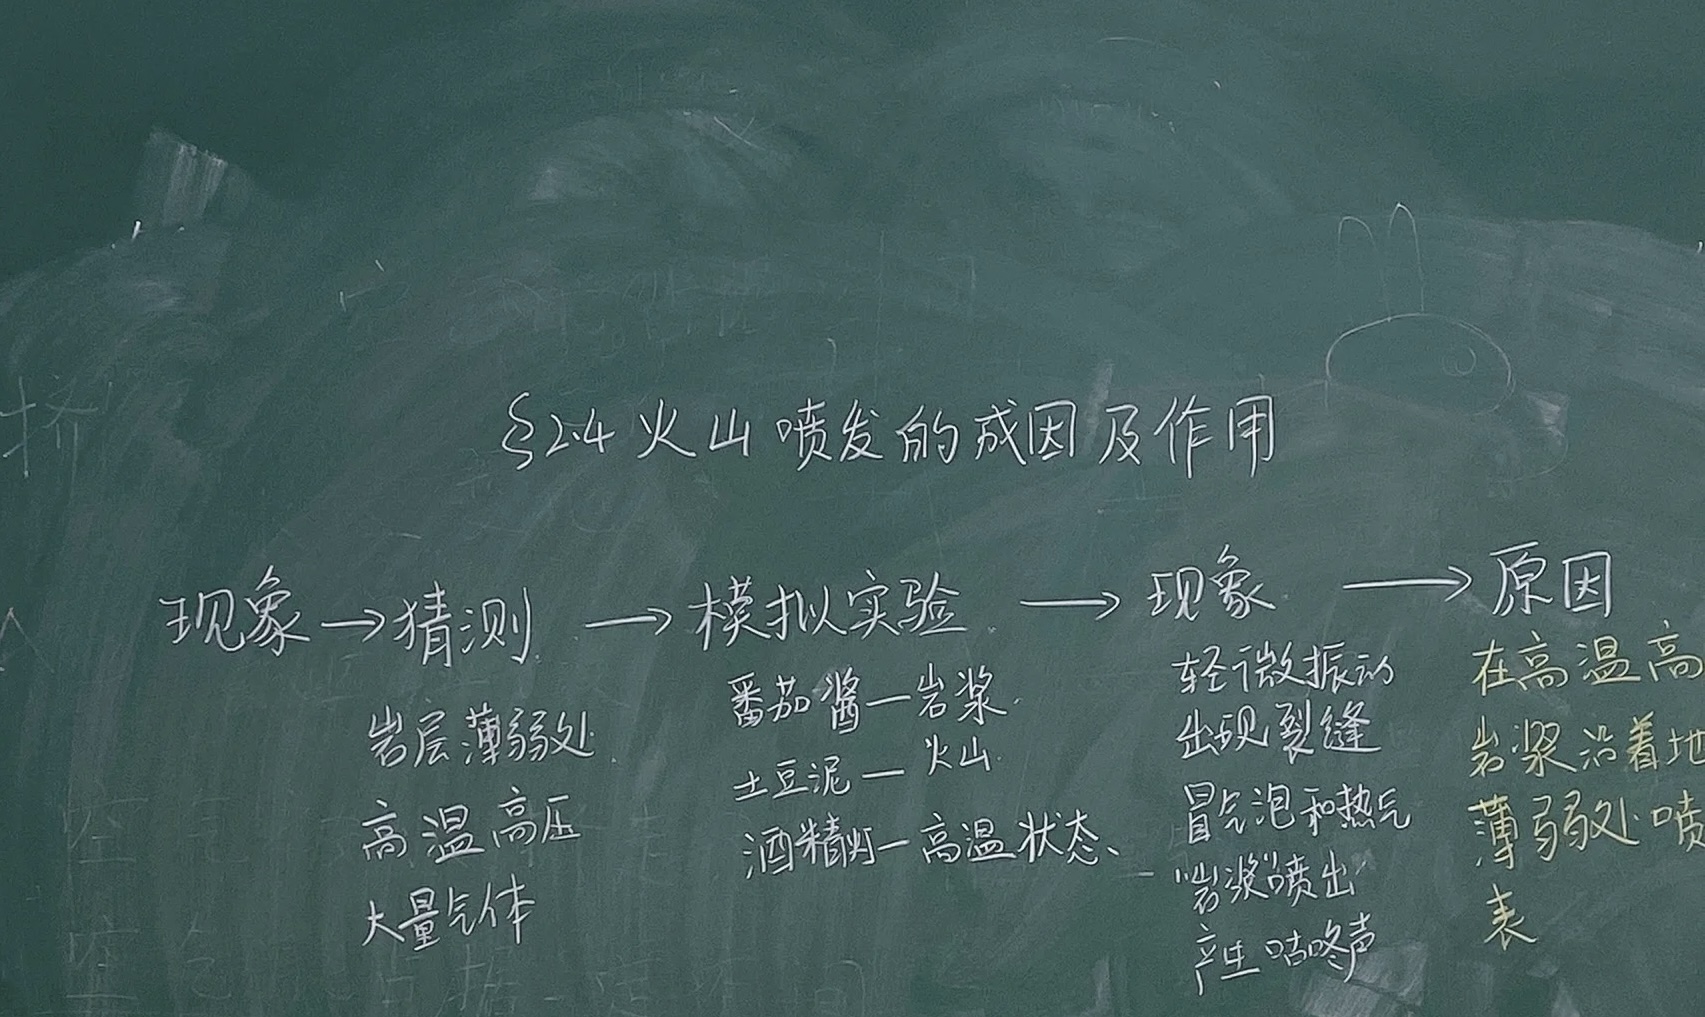 §2.4 火山喷发的成因及作用
现象→猜测→模拟实验→现象→原因
岩层薄弱处
高温高压
大量气体
番茄酱—岩浆
土豆泥—火山
酒精灯—高温状态、
轻微振动
出现裂缝
冒气泡和热气
"岩浆"喷出
产生咕咚声
在高温高
岩浆沿着地
薄弱处喷
表